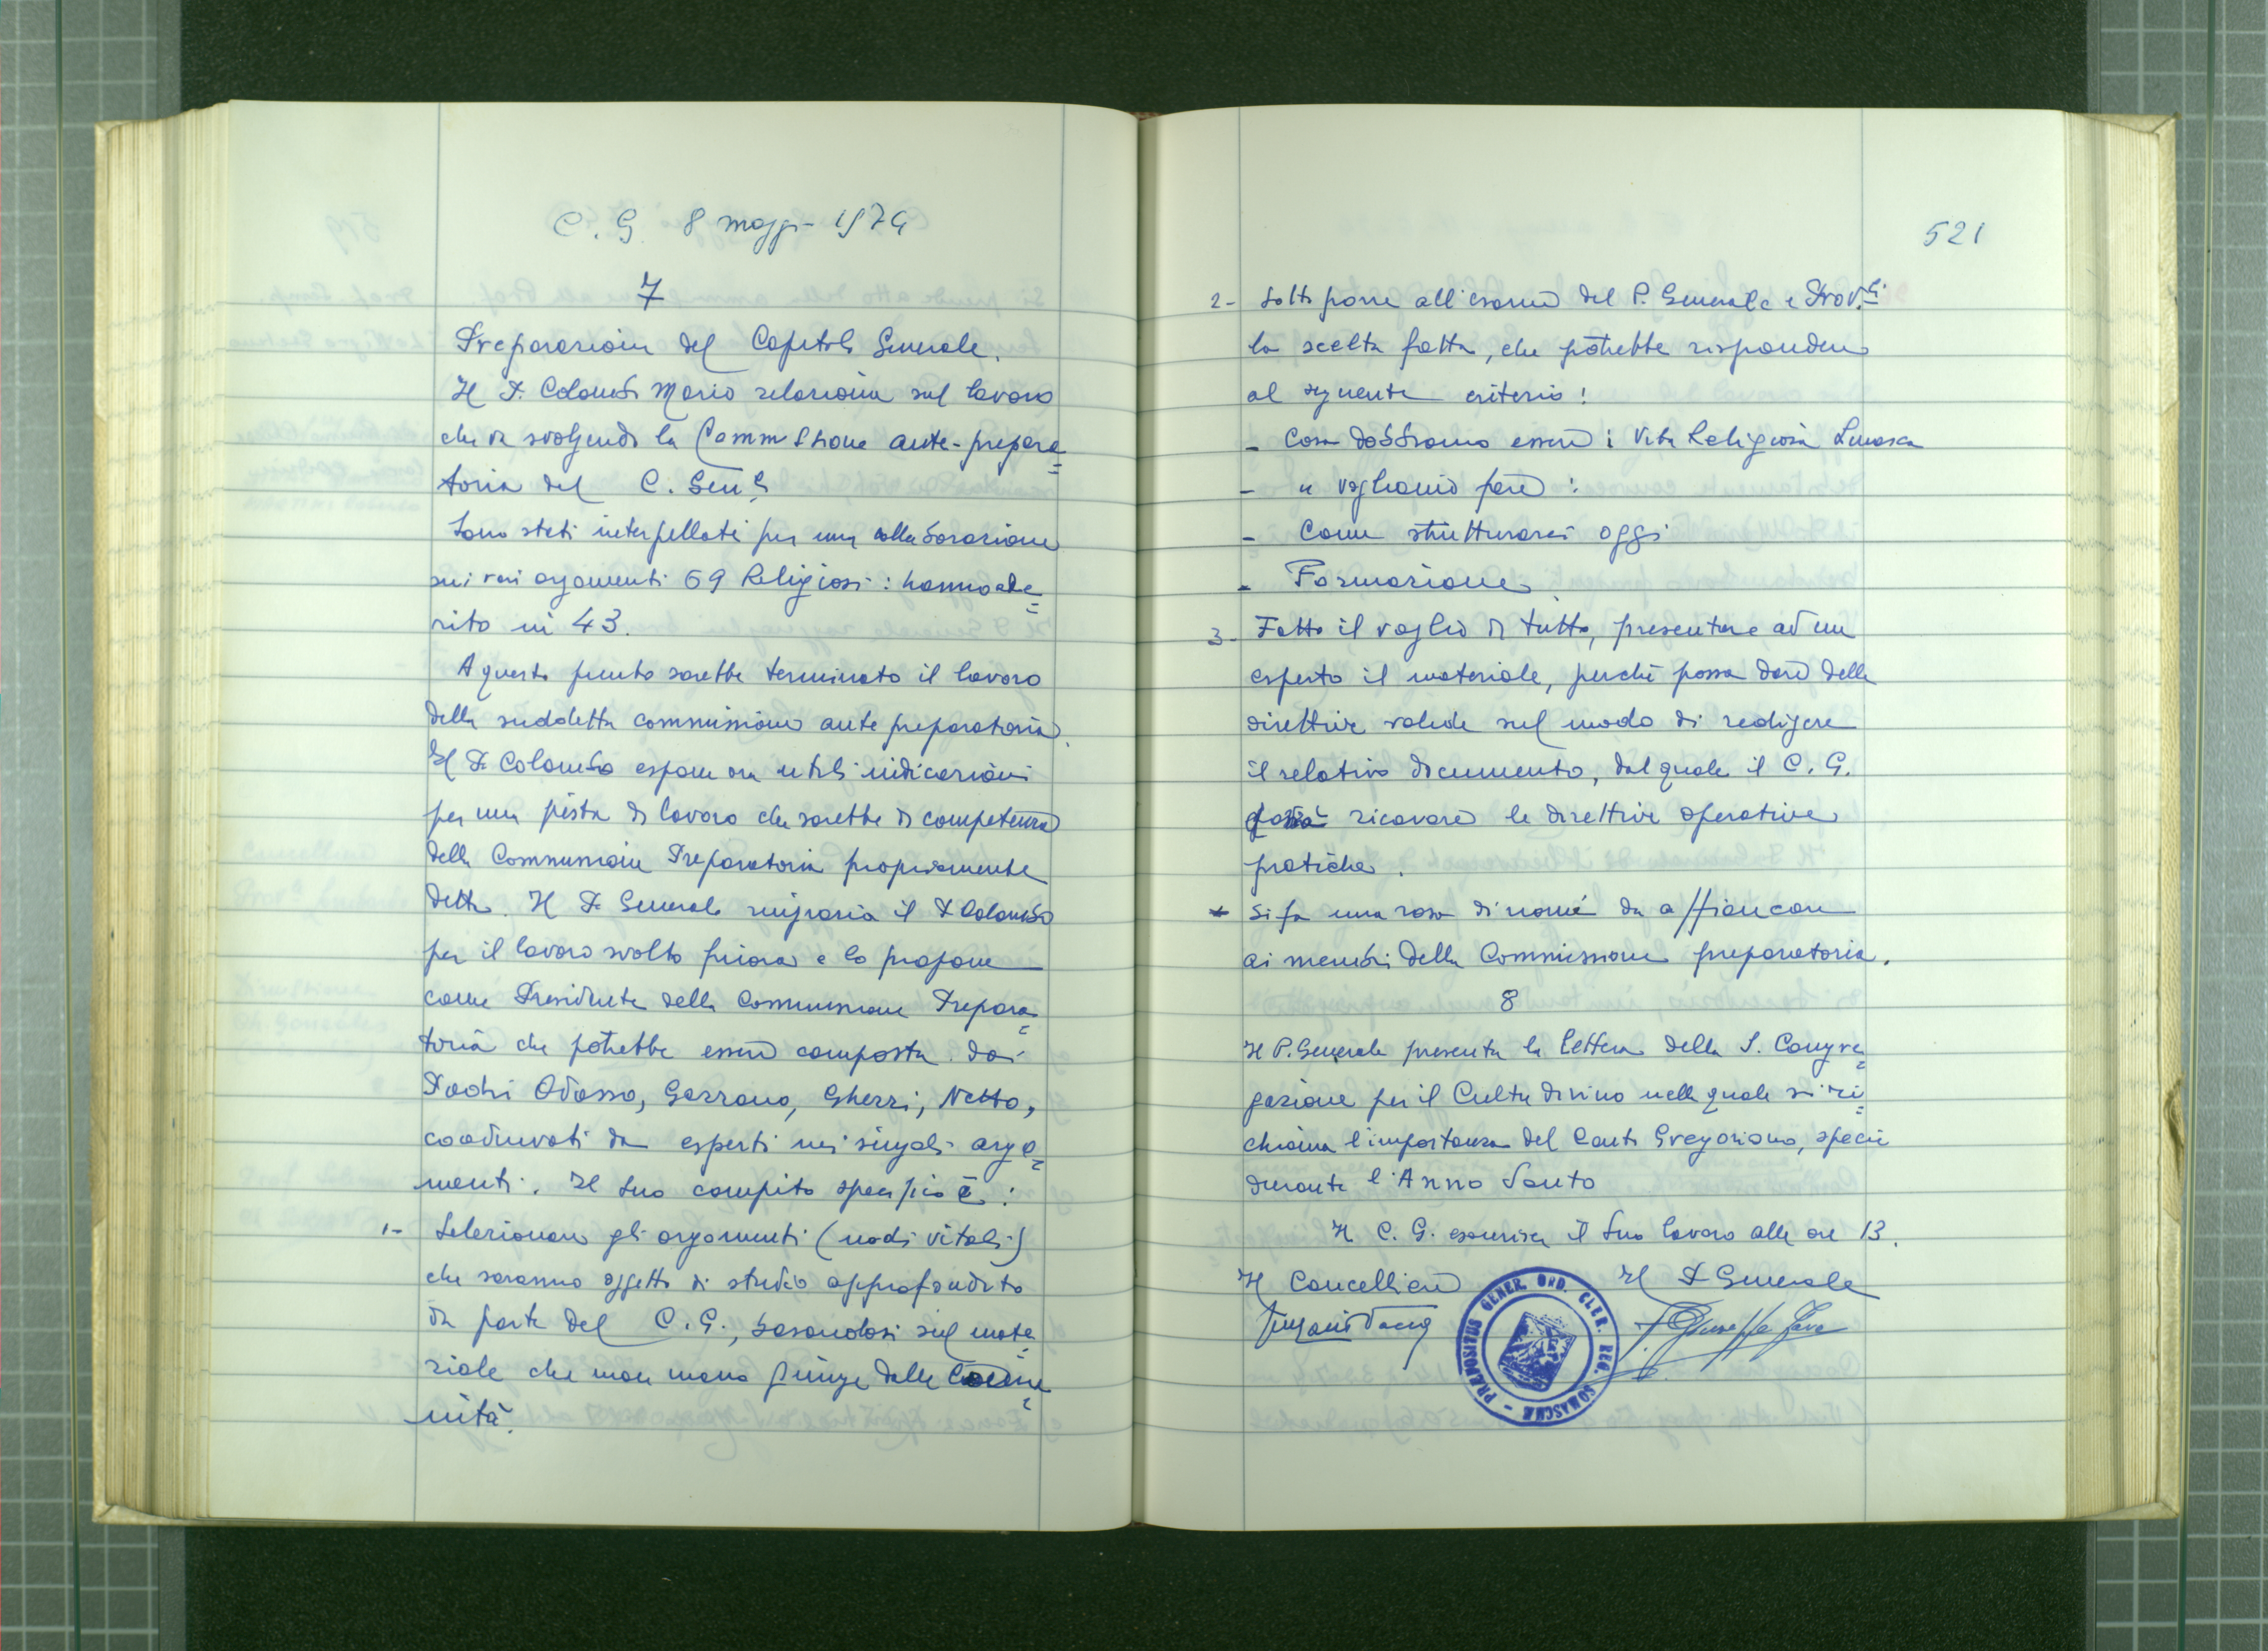 C. G. 8 maggio 1974
7
Preparazione del Capitolo Generale.
Il P. Colombo Mario relaziona sul lavoro
che va svolgendo la Commissione ante-prepara=
toria del C. Gen.le
Sono stati interpellati per una collaborazione
sui vari argomenti 69 Religiosi: hanno ade=
rito in 43.
A questo punto sarebbe terminato il lavoro
della suddetta commissione ante preparatoria.
Il P. Colombo espone ora utili indicazioni
per una pista di lavoro che sarebbe di competenza
della Commissione Preparatoria propriamente
detta. Il P. Generale ringrazia il P. Colombo
per il lavoro svolto finora e lo propone
come Presidente della Commissione Prepara=
toria che potrebbe essere composta dai
Padri Odasso, Garzano, Gherzi, Netto,
coadiuvati da esperti nei singoli argo=
menti. Il suo compito specifico è:
1- Selezionare gli argomenti (nodi vitali)
che saranno oggetto di studio approfondito
da parte del C.G., basandosi sul mate=
riale che man mano giunge dalle Comu=
nità.
521
2- Sottoporre all'esame del P. Generale e Prov.li
la scelta fatta, che potrebbe rispondere
al seguente criterio:
- Cosa dobbiamo essere: Vita Religiosa Somasca
- " vogliamo fare:
- Come strutturarci oggi
- Formazione
3- Fatto il vaglio di tutto, presentare ad un
esperto il materiale, perchè possa dare delle
direttive valide sul modo di redigere
il relativo documento, dal quale il C. G.
potrà ricavare le direttive operative
pratiche.
* Si fa una rosa di nomi da affiancare
ai membri della Commissione preparatoria.
8
Il P. Generale presenta la lettera della S. Congre=
gazione per il Culto divino nella quale si ri=
chiama l'importanza del Canto Gregoriano, specie
durante l'Anno Santo
Il C. G. esaurisce il suo lavoro alle ore 13.
Il Cancelliere Il P. Generale
P. Giuseppe Fava
PRÆPOSITUS GENER. ORD. CLER. REG. SOMASCHÆ